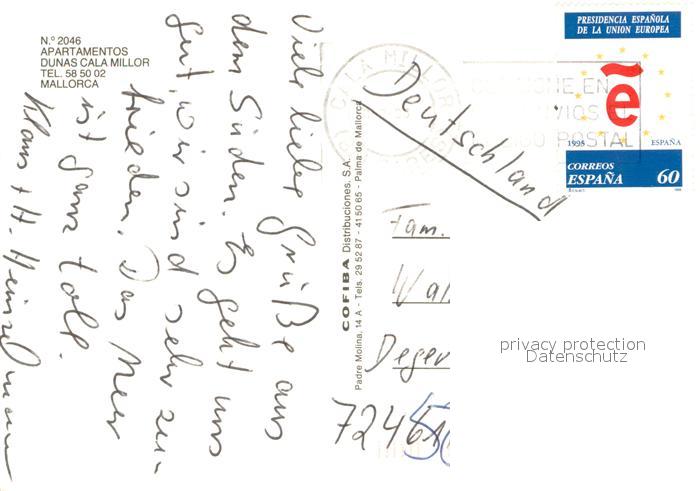 N.º 2046
APARTAMENTOS
DUNAS CALA MILLOR
TEL. 58 50 02
MALLORCA
Viele liebe Grüße aus
dem Süden. Es geht uns
gut, wir sind sehr zu-
frieden. Das Meer
ist ganz toll.
Klaus + H.
COFIBA Distribuciones, S.A.
Padre Molina, 14 A - Tels. 29 52 87 - 41 50 65 - Palma de Mallorca
CALA MILLOR
EN
POSTAL
PRESIDENCIA ESPAÑOLA
DE LA UNION EUROPEA
ẽ
1995 ESPAÑA
CORREOS
ESPAÑA 60
Deutschland
Fam.
Wal
Deger
72461
privacy protection
Datenschutz